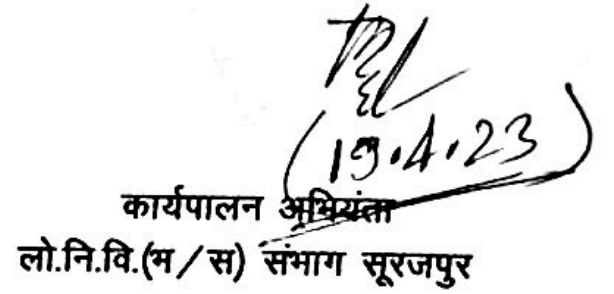 (19.4.23)
कार्यपालन अभियंता
लो.नि.वि.(म/स) संभाग सूरजपुर